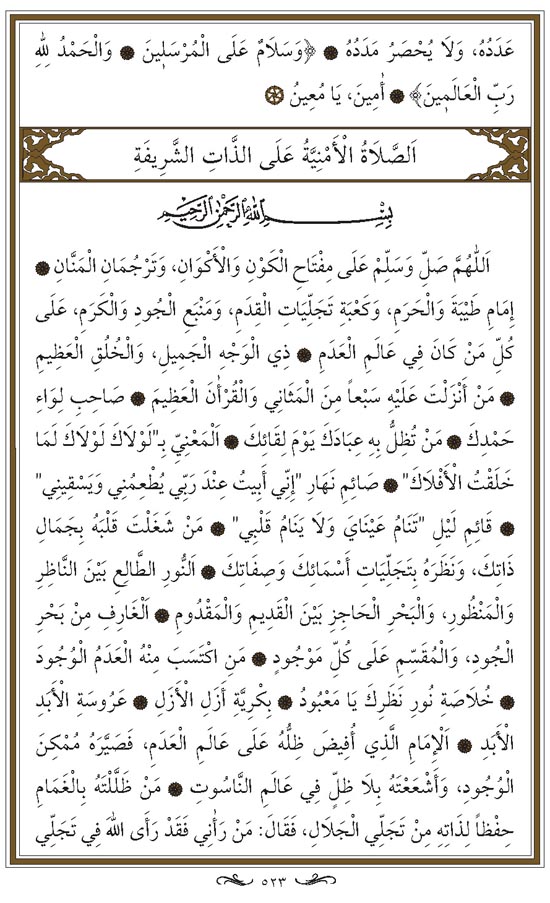 عَدَدُهُ، وَلَا يُحْصَرُ مَدَدُهُ ۞ ﴿وَسَلَامٌ عَلَى الْمُرْسَلِينَ ۞ وَالْحَمْدُ لِلّٰهِ
رَبِّ الْعَالَمِينَ﴾ ۞ أٰمِينَ، يَا مُعِينُ ۞
اَلصَّلَاةُ الْأَمْنِيَّةُ عَلَى الذَّاتِ الشَّرِيفَةِ
بِسْمِ اللهِ الرَّحْمٰنِ الرَّحِيمِ
اَللّٰهُمَّ صَلِّ وَسَلِّمْ عَلَى مِفْتَاحِ الْكَوْنِ وَالْأَكْوَانِ، وَتَرْجُمَانِ الْمَنَّانِ ۞
إِمَامِ طَيْبَةَ وَالْحَرَمِ، وَكَعْبَةِ تَجَلِّيَاتِ الْقِدَمِ، وَمَنْبَعِ الْجُودِ وَالْكَرَمِ، عَلَى
كُلِّ مَنْ كَانَ فِي عَالَمِ الْعَدَمِ ۞ ذِي الْوَجْهِ الْجَمِيلِ، وَالْخُلُقِ الْعَظِيمِ
۞ مَنْ أَنْزَلْتَ عَلَيْهِ سَبْعاً مِنَ الْمَثَانِي وَالْقُرْأٰنَ الْعَظِيمَ ۞ صَاحِبِ لِوَاءِ
حَمْدِكَ ۞ مَنْ تُظِلُّ بِهِ عِبَادَكَ يَوْمَ لِقَائِكَ ۞ اَلْمَعْنِيِّ بِـ"لَوْلَاكَ لَوْلَاكَ لَمَا
خَلَقْتُ الْأَفْلَاكَ" ۞ صَائِمِ نَهَارِ "إِنِّي أَبِيتُ عِنْدَ رَبِّي يُطْعِمُنِي وَيَسْقِينِي"
۞ قَائِمِ لَيْلِ "تَنَامُ عَيْنَايَ وَلَا يَنَامُ قَلْبِي" ۞ مَنْ شَغَلْتَ قَلْبَهُ بِجَمَالِ
ذَاتِكَ، وَنَظَرَهُ بِتَجَلِّيَاتِ أَسْمَائِكَ وَصِفَاتِكَ ۞ اَلنُّورِ الطَّالِعِ بَيْنَ النَّاظِرِ
وَالْمَنْظُورِ، وَالْبَحْرِ الْحَاجِزِ بَيْنَ الْقَدِيمِ وَالْمَقْدُومِ ۞ اَلْغَارِفِ مِنْ بَحْرِ
الْجُودِ، وَالْمُقَسِّمِ عَلَى كُلِّ مَوْجُودٍ ۞ مَنِ اكْتَسَبَ مِنْهُ الْعَدَمُ الْوُجُودَ
۞ خُلَاصَةِ نُورِ نَظَرِكَ يَا مَعْبُودُ ۞ بِكْرِيَّةِ أَزَلِ الْأَزَلِ ۞ عَرُوسَةِ الْأَبَدِ
الْأَبَدِ ۞ اَلْإِمَامِ الَّذِي أُفِيضَ ظِلُّهُ عَلَى عَالَمِ الْعَدَمِ، فَصَيَّرَهُ مُمْكِنَ
الْوُجُودِ، وَأَشْعَعْتَهُ بِلَا ظِلٍّ فِي عَالَمِ النَّاسُوتِ ۞ مَنْ ظَلَّلْتَهُ بِالْغَمَامِ
حِفْظاً لِذَاتِهِ مِنْ تَجَلِّي الْجَلَالِ، فَقَالَ: مَنْ رَأٰنِي فَقَدْ رَأَى اللهَ فِي تَجَلِّي
٥٢٣